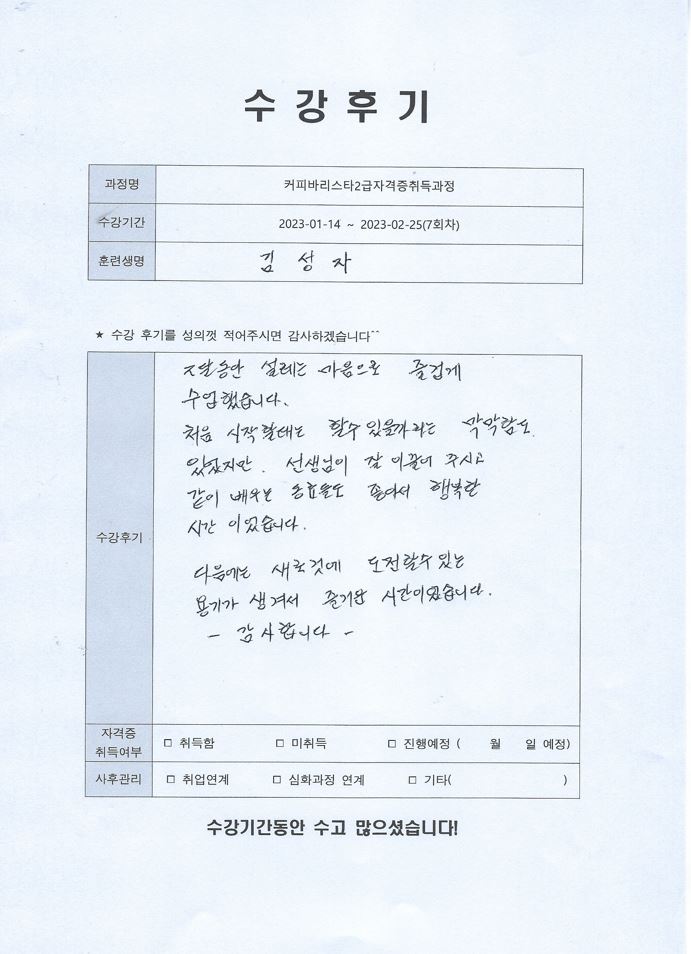 수 강 후 기
과정명 커피바리스타2급자격증취득과정
수강기간 2023-01-14 ~ 2023-02-25(7회차)
훈련생명 김 성 자
★ 수강 후기를 성의껏 적어주시면 감사하겠습니다^^
설레는 마음으로 즐겁게
수업했습니다.
처음 시작할때는 할수있을까라는 막막함도
있었지만. 선생님이 잘 이끌어 주시고
같이 배우는 좋아서 행복한
시간 이었습니다.
수강후기
다음에는 새로것에 도전할수있는
용기가 생겨서 즐거운 시간이었습니다.
- 감사합니다 -
자격증
취득여부 □ 취득함 □ 미취득 □ 진행예정 ( 월 일 예정)
사후관리 □ 취업연계 □ 심화과정 연계 □ 기타( )
수강기간동안 수고 많으셨습니다!